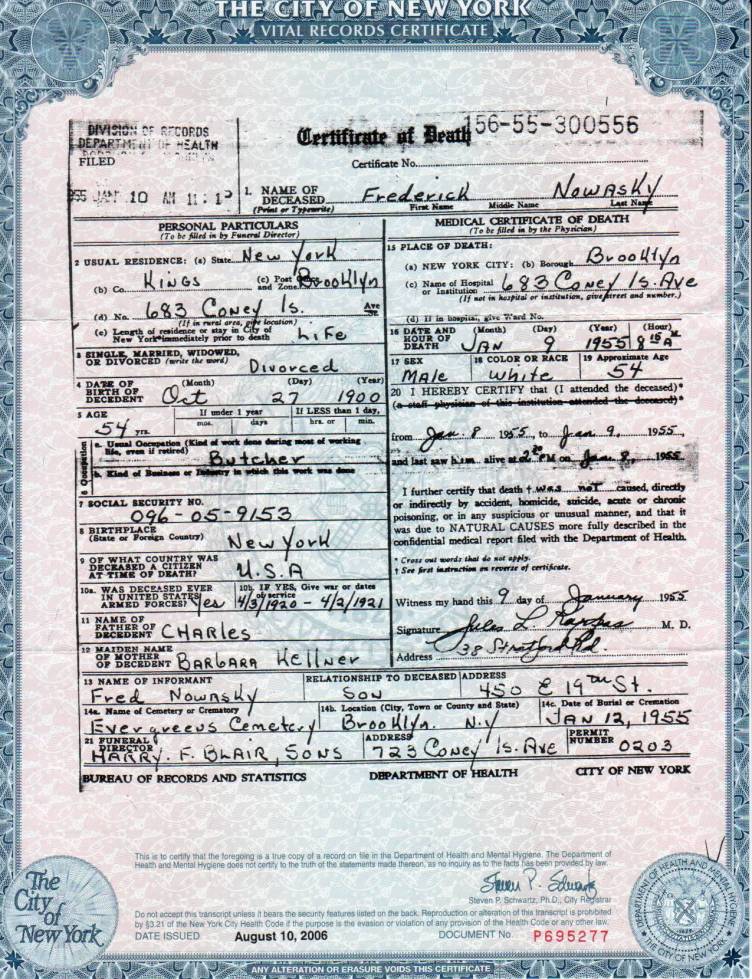 THE CITY OF NEW YORK
VITAL RECORDS CERTIFICATE
DIVISION OF RECORDS
DEPARTMENT OF HEALTH
FILED
Certificate of Death
156-55-300556
Certificate No.
JAN 10 AM 11:1
1. NAME OF DECEASED (Print or Typewrite) Frederick Nowasky
First Name Middle Name Last Name
PERSONAL PARTICULARS
(To be filled in by Funeral Director)
2 USUAL RESIDENCE: (a) State New York
(b) Co. Kings (c) Post Office and Zone Brooklyn
(d) No. 683 Coney Is. Ave
(If in rural area, give location)
(e) Length of residence or stay in City of New York immediately prior to death Life
3 SINGLE, MARRIED, WIDOWED, OR DIVORCED (write the word) Divorced
4 DATE OF BIRTH OF DECEDENT (Month) (Day) (Year)
Oct 27 1900
5 AGE 54 yrs. If under 1 year mos. days If LESS than 1 day, hrs. or min.
6 Occupation
a. Usual Occupation (Kind of work done during most of working life, even if retired) Butcher
b. Kind of Business or Industry in which this work was done
7 SOCIAL SECURITY NO.
096-05-9153
8 BIRTHPLACE (State or Foreign Country) New York
9 OF WHAT COUNTRY WAS DECEASED A CITIZEN AT TIME OF DEATH? U.S.A
10a. WAS DECEASED EVER IN UNITED STATES ARMED FORCES? Yes
10b. IF YES, Give war or dates of service 4/3/1920 - 4/2/1921
11 NAME OF FATHER OF DECEDENT CHARLES
12 MAIDEN NAME OF MOTHER OF DECEDENT BARBARA Kellner
MEDICAL CERTIFICATE OF DEATH
(To be filled in by the Physician)
15 PLACE OF DEATH:
(a) NEW YORK CITY: (b) Borough Brooklyn
(c) Name of Hospital or Institution 683 Coney Is. Ave
(If not in hospital or institution, give street and number.)
(d) If in hospital, give Ward No.
16 DATE AND HOUR OF DEATH (Month) (Day) (Year) (Hour)
JAN 9 1955 8 15 A M
17 SEX MALE
18 COLOR OR RACE White
19 Approximate Age 54
20 I HEREBY CERTIFY that (I attended the deceased)*
(a staff physician of this institution attended the deceased)*
from Jan. 8 1955, to Jan 9, 1955,
and last saw him alive at 2 PM on Jan 8, 1955
I further certify that death † was not caused, directly
or indirectly by accident, homicide, suicide, acute or chronic
poisoning, or in any suspicious or unusual manner, and that it
was due to NATURAL CAUSES more fully described in the
confidential medical report filed with the Department of Health.
* Cross out words that do not apply.
† See first instruction on reverse of certificate.
Witness my hand this 9 day of January 1955
Signature Jules L. Kappas M. D.
Address 38 Stratford Rd.
13 NAME OF INFORMANT RELATIONSHIP TO DECEASED ADDRESS
Fred Nowasky Son 450 E 19th St.
14a. Name of Cemetery or Crematory 14b. Location (City, Town or County and State) 14c. Date of Burial or Cremation
Evergreens Cemetery Brooklyn. N.Y JAN 12, 1955
21 FUNERAL DIRECTOR ADDRESS PERMIT NUMBER
HARRY. F. BLAIR, SONS 723 Coney Is. Ave 0203
BUREAU OF RECORDS AND STATISTICS DEPARTMENT OF HEALTH CITY OF NEW YORK
This is to certify that the foregoing is a true copy of a record on file in the Department of Health and Mental Hygiene. The Department of
Health and Mental Hygiene does not certify to the truth of the statements made thereon, as no inquiry as to the facts has been provided by law.
Steven P. Schwartz
Steven P. Schwartz, Ph.D., City Registrar
Do not accept this transcript unless it bears the security features listed on the back. Reproduction or alteration of this transcript is prohibited
by §3.21 of the New York City Health Code if the purpose is the evasion or violation of any provision of the Health Code or any other law.
DATE ISSUED August 10, 2006 DOCUMENT No. P695277
The City of New York
DEPARTMENT OF HEALTH AND MENTAL HYGIENE
THE CITY OF NEW YORK
ANY ALTERATION OR ERASURE VOIDS THIS CERTIFICATE